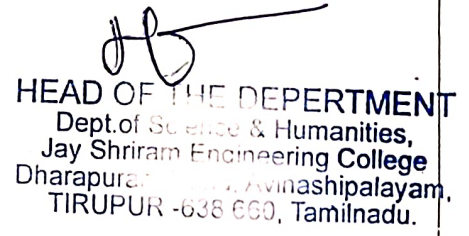 HEAD OF THE DEPERTMENT
Dept.of Science & Humanities,
Jay Shriram Engineering College
Avinashipalayam,
TIRUPUR -638 660, Tamilnadu.